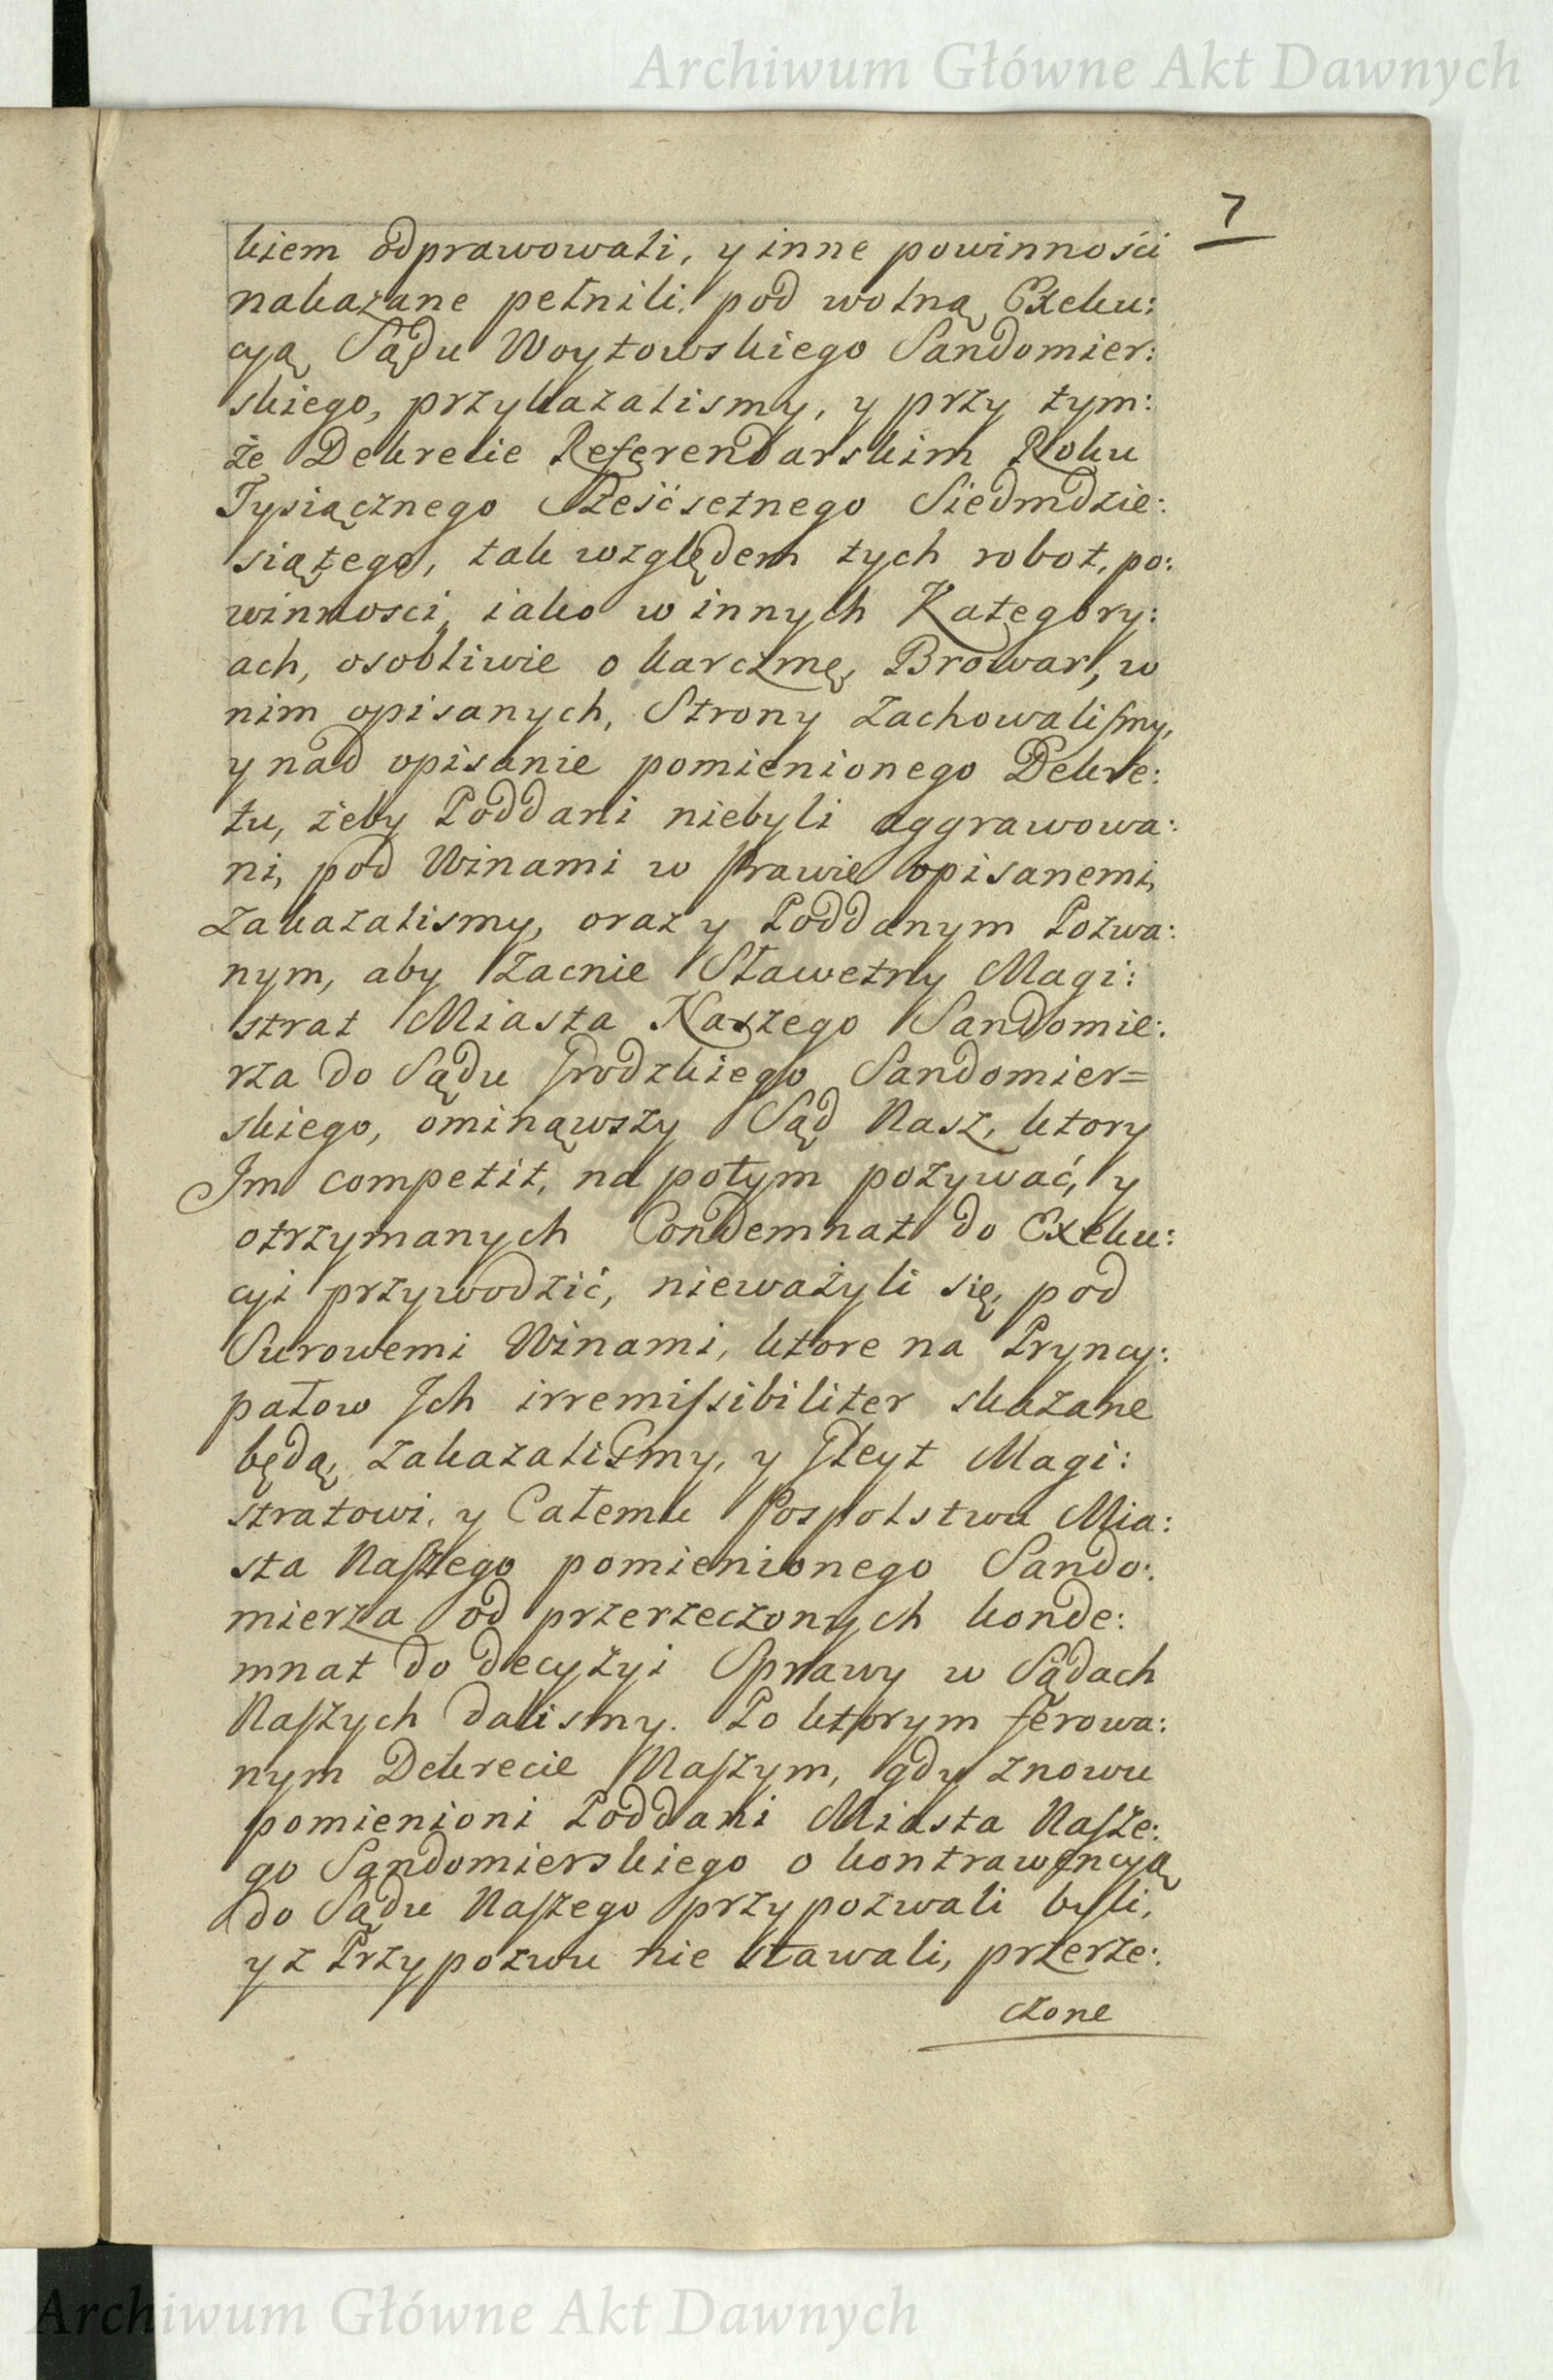 Archiwum Główne Akt Dawnych
7
kiem odprawowali, y inne powinności
nakazane pełnili, pod wolną Exeku:
cyą Sądu Woytowskiego Sandomier:
skiego, przykazalismy, y przy tym:
że Dekrecie Referendarskim Roku
Tysiącznego Sześćsetnego Siedmdzie:
siątego, tak względem tych robot, po:
winnosci, iako w innych Kategory:
ach, osobliwie o karczmę, Browar, w
nim opisanych, Strony zachowaliſmy,
y nad opisanie pomienionego Dekre:
tu, żeby Poddani niebyli aggrawowa:
ni, pod Winami w Prawie opisanemi,
zakazalismy, oraz y Poddanym Pozwa:
nym, aby Zacnie Sławetny Magi:
strat Miasta Naszego Sandomie:
rza do Sądu Grodzkiego Sandomier=
skiego, ominąwszy Sąd Nasz, ktory
Im competit, na potym pozywać, y
otrzymanych Condemnat do Exeku:
cyi przywodzić, nieważyli się, pod
Surowemi Winami, ktore na Pryncy:
pałow Ich irremiſsibiliter skazane
będą, zakazaliśmy, y Gleyt Magi:
stratowi, y Całemu Pospolstwu Mia:
sta Naſzego pomienionego Sando:
mierza od przerzeczonych konde:
mnat do decyzyi Sprawy w Sądach
Naſzych dalismy. Po ktorym ferowa:
nym Dekrecie Naſzym, gdy znowu
pomienioni Poddani Miasta Naſze:
go Sandomierskiego o kontrawencyą
do Sądu Naſzego przypozwali byli,
y z Przypozwu nie stawali, przerze:
czone
Archiwum Główne Akt Dawnych